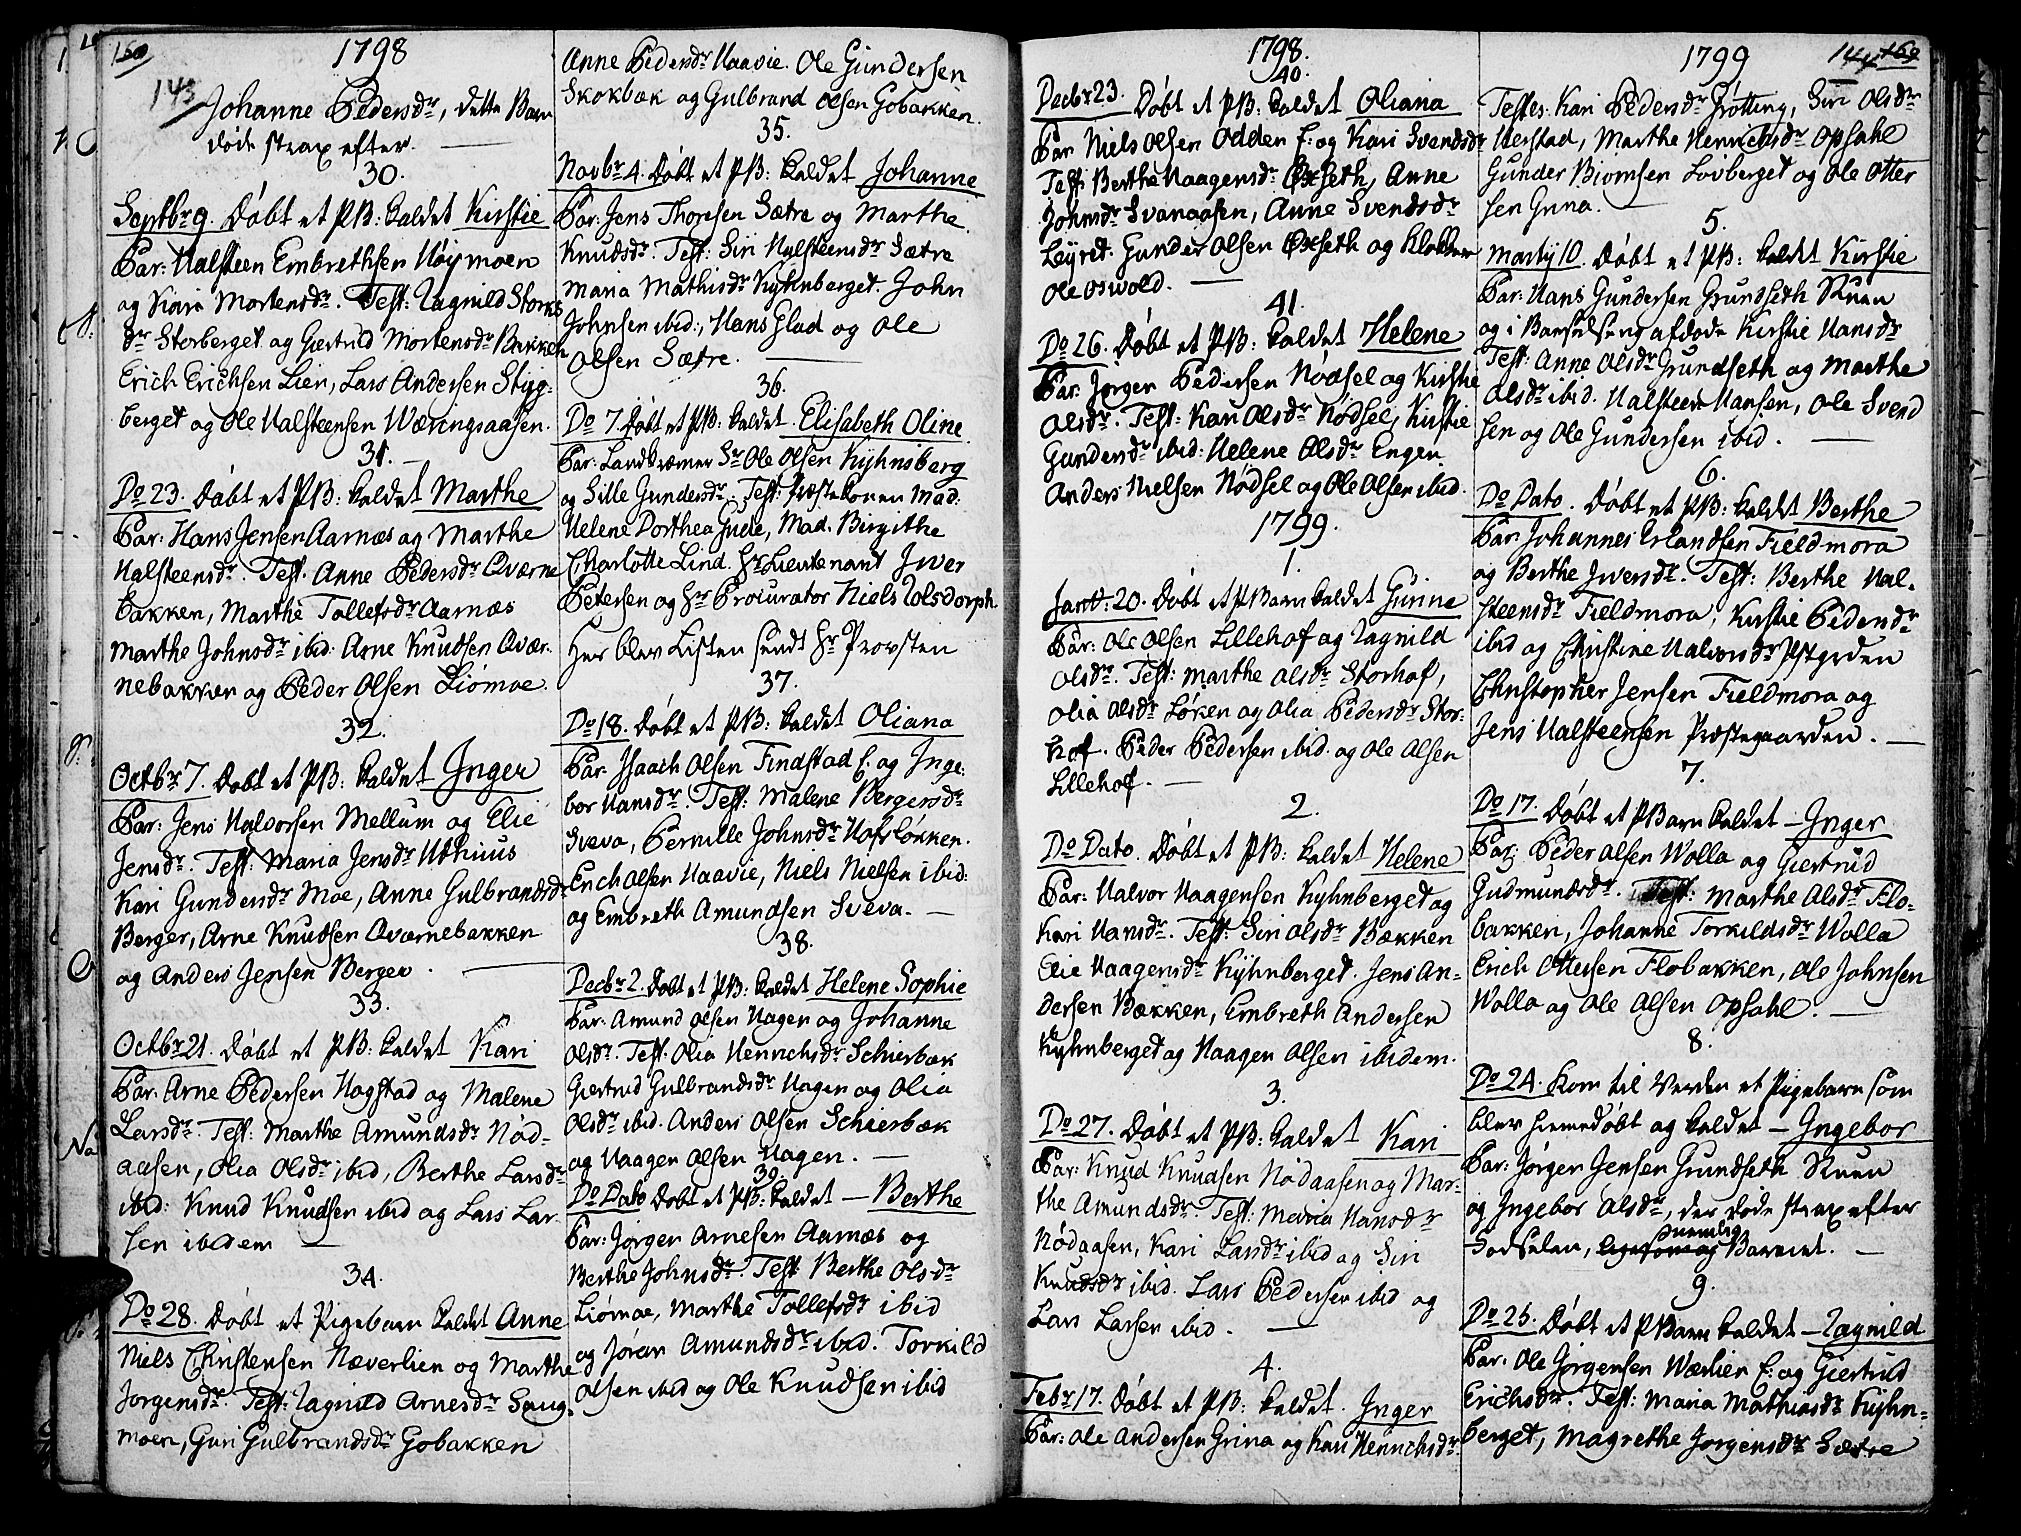 160
143
1798
Johanne Pedersdr, dette Barn
døde strax efter.
30.
Septbr 9. Døbt et PB: kaldet Kirstie
Par: Halsteen Embrethsen Høymoen
og Kari Mortensdr. Test: Ragnild Stors
dr Storberget og Giertrud Mortensdr Bakken
Erich Erichsen Lien, Lars Andersen Styg-
berget og Ole Halsteensen Wæringsaasen.
31.
Do 23. Døbt et PB: kaldet Marthe
Par: Hans Jensen Aarnæs og Marthe
Halsteensdr. Test: Anne Pedersdr Qværne
bakken, Marthe Tollefsdr Aarnæs
Marthe Johnsdr ibid: Arne Knudsen Qvær-
nebakken og Peder Olsen Liømoe.
32.
Octbr 7. Døbt et PB: kaldet Inger
Par: Jens Halvorsen Mellum og Elie
Jensdr. Test: Maria Jensdr Uthuus
Kari Gundersdr Moe, Anne Gulbrandsdr
Berger, Arne Knudsen Qværnebakken
og Anders Jensen Berger.
33.
Octbr 21. Døbt et PB: kaldet Kari
Par: Arne Pedersen Hagstad og Malene
Larsdr. Test: Marthe Amundsdr Nød-
aasen, Olia Olsdr ibid, Berthe Larsdr
ibid: Knud Knudsen ibid og Lars Lar
sen ibidem
34.
Do 28. Døbt et Pigebarn kaldet Anne
Niels Christensen Næverlien og Marthe
Jorgensdr. Test: Ragnild Arnesdr Saug-
moen, Guri Gulbrandsdr Gobakken
Anne Pedersdr Haavie. Ole Gundersen
Skokbæk og Gulbrand Olsen Gobakken.
35.
Novbr 4. Døbt et PB: kaldet Johanne
Par: Jens Thoresen Sætre og Marthe
Knudsdr. Test: Siri Halsteensdr Sætre
Maria Mathisdr Kyhnberget. John
Johnsen ibid:, Hans Glad og Ole
Olsen Sætre.
36.
Do 7. Døbt et PB: kaldet Elisabeth Oline
Par: Landkræmer Sr Ole Olsen Kyhnsberg
og Sille Gundersdr. Test: Præstekonen Mad.
Helene Dorthea Gude, Mad. Birgithe
Charlotte Lind. Hr Lieutenant Iver
Petersen og Hr Procurator Niels Tolsdorph
Her blev Listen sendt Hr Provsten
37.
Do 18. Døbt et PB: kaldet Oliana
Par. Isaach Olsen Findstad E: og Inge-
bor Hansdr. Test: Malene Bergersdr
Sveva, Pernille Johnsdr Hofsløkken.
Erich Olsen Haavie, Niels Nielsen ibid:
og Embreth Amundsen Sveva.
38.
Decbr 2. Døbt et PB: kaldet Helene Sophie
Par: Amund Olsen Hagen og Johanne
Olsdr. Test: Olia Henrichsdr Schierbæk
Giertrud Gulbrandsdr Hagen og Olia
Olsdr ibid. Anders Olsen Schierbæk
og Haagen Olsen Hagen.
39.
Do Dato Døbt et PB: kaldet Berthe
Par: Jørgen Arnesen Aarnæs og
Berthe Johnsdr. Test Berthe Olsdr
Liømoe, Marthe Tollefsdr ibid
og Jøran Amundsdr ibid. Torkild
Olsen ibid og Ole Knudsen ibid
1798.
40.
Decbr 23. Døbt et PB: kaldet Oliana
Par Niels Olsen Odden E: og Kari Svendsdr
Test: Berthe Haagensdr Oxseth, Anne
Johnsdr Svanaasen, Anne Svendsdr
Løyret. Gunder Olsen Oxseth og Klokker
Ole Oswold.
41.
Do 26. Døbt et PB: kaldet Helene
Par: Jørgen Pedersen Nødsel og Kirstie
Olsdr. Test: Kari Olsdr Nødsel, Kirstie
Gundersdr ibid: Helene Olsdr Engen.
Anders Nielsen Nødsel og Ole Olsen ibid.
1799.
1.
Jantr: 20. Døbt et PBarn kaldet Gunne
Par: Ole Olsen Lillehof og Ragnild
Olsdr. Test: Marthe Olsdr Storhof,
Olia Olsdr Løken og Olia Pedersdr Stor-
hof. Peder Pedersen ibid. og Ole Olsen
Lillehof.
2.
Do Dato. Døbt et PB: kaldet Helene
Par: Halvor Haagensen Kyhnberget og
Kari Hansdr. Test: Siri Olsdr Bækken
Elie Haagensdr Kyhnberget. Jens An-
dersen Bækken, Embreth Andersen
Kyhnberget og Haagen Olsen ibidem.
3.
Do 27. Døbt et PB: kaldet Kari
Par: Knud Knudsen Nødaasen og Mar-
the Amundsdr. Test: Maria Hansdr
Nødaasen, Kari Larsdr ibid og Siri
Knudsdr ibid. Lars Pedersen ibid og
Lars Larsen ibid.
4.
Febr 17. Døbt et PB: kaldet. Inger
Par: Ole Andersen Grina og Kari Henrichsdr
1799
144 169
Testes. Kari Pedersdr Grøtting, Siri Olsdr
Herstad, Marthe Henrichsdr Opsahl
Gunder Biørnsen Løvberget og Ole Otter
sen Grina.
5.
Marty 10. Døbt et PB: kaldet Kirstie
Par: Hans Gundersen Grundseth Skuen
og i Barselseng afdøde Kirstie Hansdr
Test: Anne Olsdr Grundseth og Marthe
Olsdr ibid. Halsteen Hansen, Ole Svend
sen og Ole Gundersen ibid.
6.
Do Dato. Døbt et PB: kaldet Berthe
Par: Johannes Erlandsen Fieldmora
og Berthe Iversdr. Test: Berthe Hal-
steensdr Fieldmora, Kirstie Pedersdr
ibid og Christine Halvorsdr Pstgrden
Christopher Jensen Fieldmora og
Jens Halsteensen Præstegaarden.
7.
Do 17. Døbt et PBarn kaldet Inger
Par: Peder Olsen Wolla og Giertrud
Gudmundsdr. Test: Marthe Olsdr Flo-
bakken, Johanne Torkildsdr Wolla
Erich Ottersen Flobakken, Ole Johnsen
Wolla og Ole Olsen Opsahl.
8.
Do 24. Kom til Verden et Pigebarn som
blev hiemedøbt og kaldet Ingebor
Par: Jørgen Jensen Grundseth Skuen
og Ingebor Olsdr, der døde strax efter
Fødselen, Barnet.
9.
Do 25. Døbt et PBarn kaldet Ragnild
Par: Ole Jørgensen Wærlien E: og Giertrud
Erichsdr. Test: Maria Mathiasdr Kyhn-
berget, Magrethe Jorgensdr Sætre